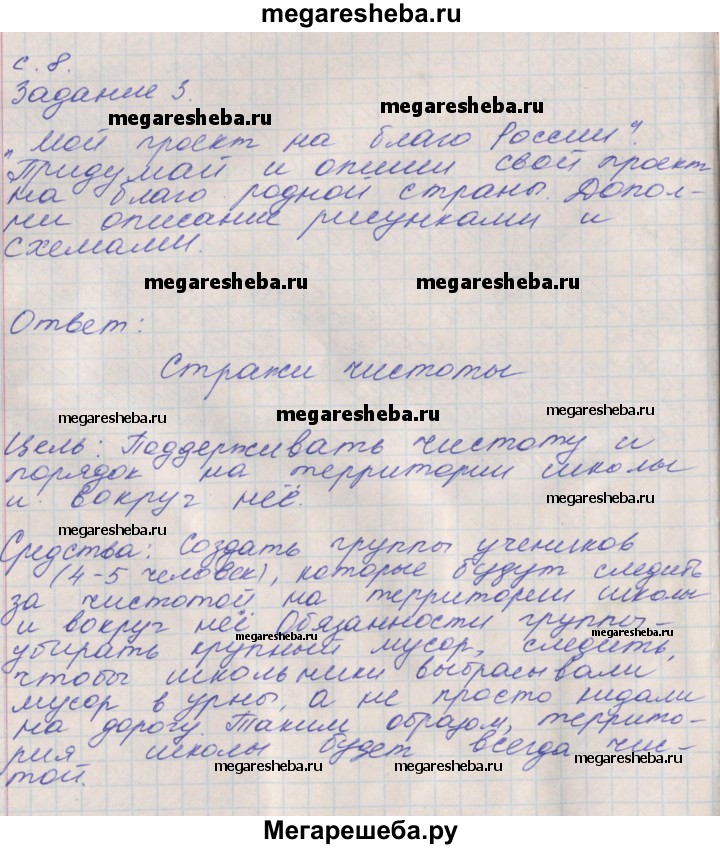 megaresheba.ru
с. 8.
Задание 3.
megaresheba.ru
megaresheba.ru
„Мой проект на благо России“.
Придумай и опиши свой проект
на благо родной страны. Допол-
ни описание рисунками и
схемами.
megaresheba.ru
megaresheba.ru
Ответ:
Стражи чистоты
megaresheba.ru
megaresheba.ru
megaresheba.ru
Цель: Поддерживать чистоту и
порядок на территории школы
и вокруг неё.
megaresheba.ru
megaresheba.ru
Средства: Создать группы учеников
(4-5 человек), которые будут следить
за чистотой на территории школы
и вокруг неё. Обязанности группы -
megaresheba.ru
megaresheba.ru
убирать крупный мусор, следить,
чтобы школьники выбрасывали
мусор в урны, а не просто кидали
на дорогу. Таким образом, террито-
рия школы будет всегда чис-
той.
megaresheba.ru
megaresheba.ru
megaresheba.ru
Мегарешеба.ру